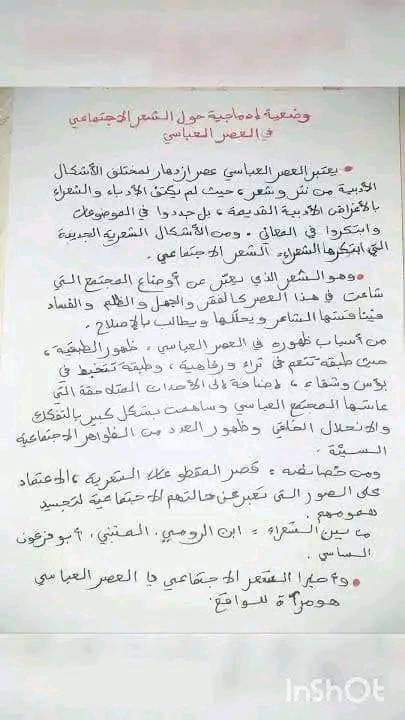 وضعية إدماجية حول الشعر الاجتماعي
في العصر العباسي
• يعتبر العصر العباسي عصر ازدهار لمختلف الأشكال
الأدبية من نثر وشعر، حيث لم يكتف الأدباء والشعراء
بالأغراض الأدبية القديمة، بل جددوا في الموضوعات
وابتكروا في المعاني. ومن الأشكال الشعرية الجديدة
التي ابتكرها الشعراء الشعر الاجتماعي.
• وهو الشعر الذي يعبر عن أوضاع المجتمع التي
شاعت في هذا العصر كالفقر والجهل والظلم والفساد
فيناقشها الشاعر ويحللها ويطالب بالإصلاح.
من أسباب ظهوره في العصر العباسي، ظهور الطبقية،
حيث طبقة تنعم في ثراء ورفاهية، وطبقة تتخبط في
بؤس وشقاء، إضافة إلى الأحداث المتلاحقة التي
عاشها المجتمع العباسي وساهمت بشكل كبير بالتفكك
والانحلال الخلقي وظهور العدد من الظواهر الاجتماعية
السيئة.
ومن خصائصه: قصر المقطوعات الشعرية، الاعتماد
على الصور التي تعبر عن حالتهم الاجتماعية لتجسيد
همومهم.
من بين الشعراء: ابن الرومي، المتنبي، أبو فرعون
الساسي.
• وأخيرا الشعر الاجتماعي في العصر العباسي
هو مرآة للواقع.
InShOt